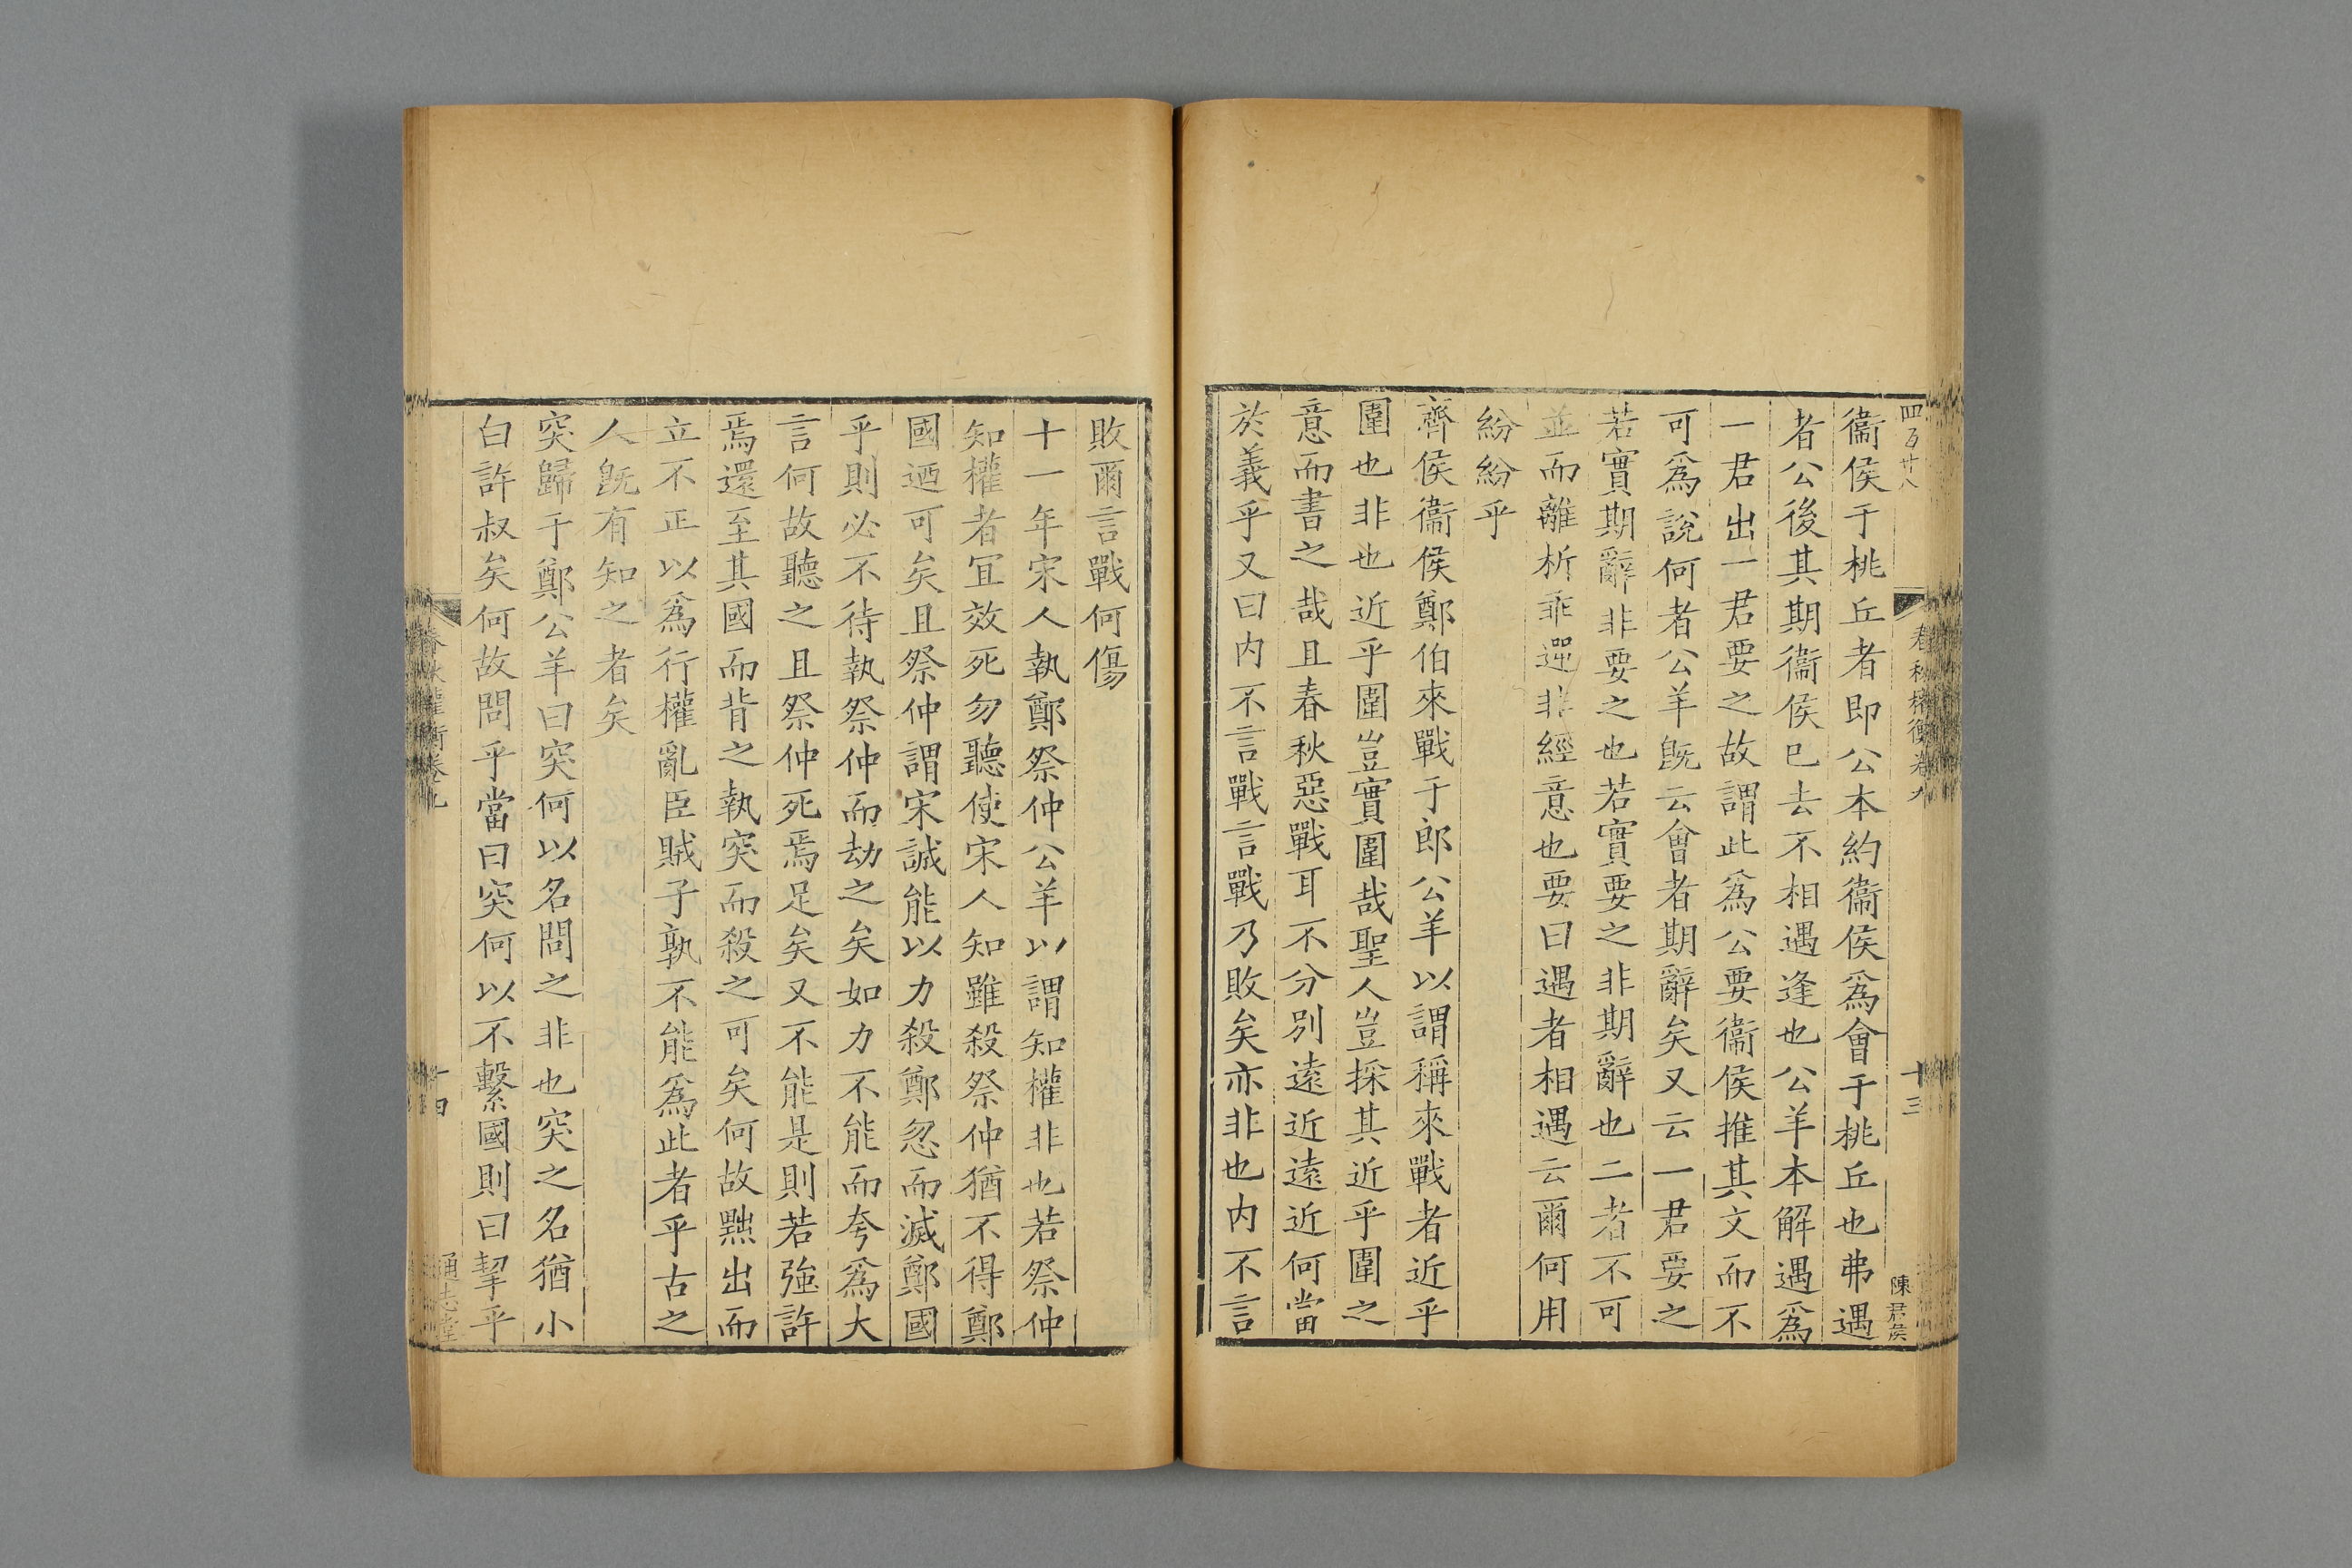 四百廿八
春秋權衡卷九
十三
陳君侯
衞侯于桃丘者即公本約衞侯爲會于桃丘也弗遇
者公後其期衞侯巳去不相遇逢也公羊本解遇爲
一君出一君要之故謂此爲公要衞侯推其文而不
可爲說何者公羊旣云會者期辭矣又云一君要之
若實期辭非要之也若實要之非期辭也二者不可
並而離析乖逆非經意也要曰遇者相遇云爾何用
紛紛乎
齊侯衞侯鄭伯來戰于郎公羊以謂稱來戰者近乎
圍也非也近乎圍豈實圍哉聖人豈探其近乎圍之
意而書之哉且春秋惡戰耳不分别遠近遠近何當
於義乎又曰内不言戰言戰乃敗矣亦非也内不言
敗爾言戰何傷
十一年宋人執鄭祭仲公羊以謂知權非也若祭仲
知權者宜效死勿聽使宋人知雖殺祭仲猶不得鄭
國迺可矣且祭仲謂宋誠能以力殺鄭忽而滅鄭國
乎則必不待執祭仲而劫之矣如力不能而夸爲大
言何故聽之且祭仲死焉足矣又不能是則若強許
焉還至其國而背之執突而殺之可矣何故黜出而
立不正以爲行權亂臣賊子孰不能爲此者乎古之
人旣有知之者矣
突歸于鄭公羊曰突何以名問之非也突之名猶小
白許叔矣何故問乎當曰突何以不繫國則曰挈乎
春秋權衡卷九
十四
通志堂